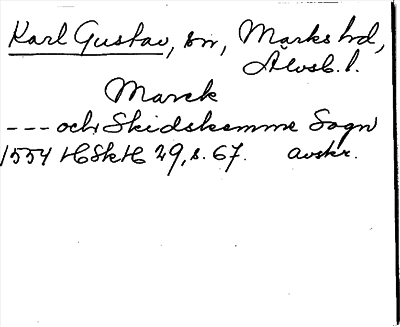 Karl Gustav, sn, Marks hd,
Älvsb. l.
Marck
--- och Skidskemme Sogn
1554 HSkH 29, s. 67. avskr.